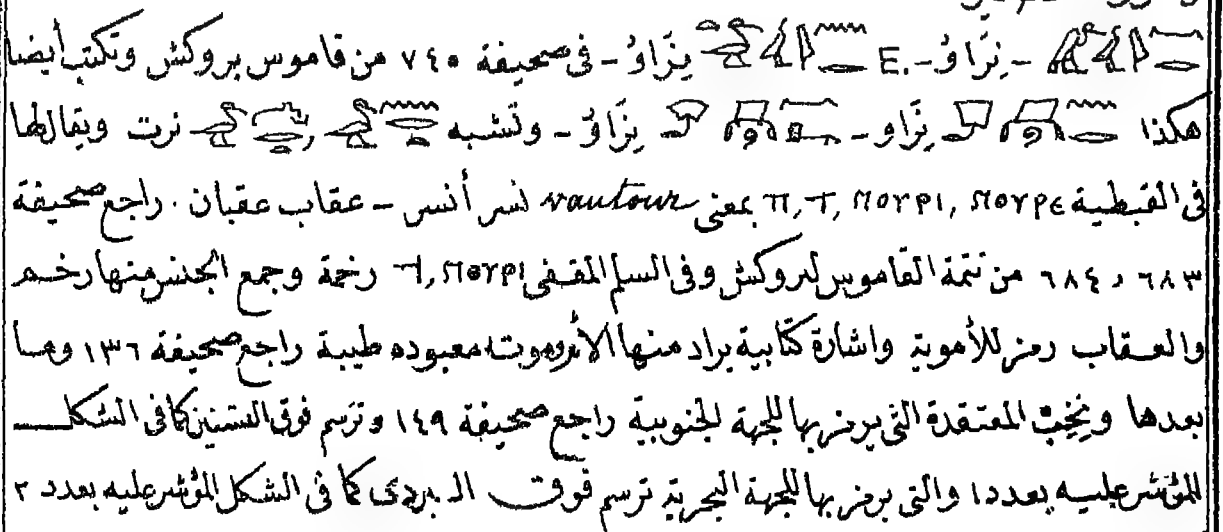 - نِرَاوُ -.E نِرَاوُ - فى صحيفة ٧٤٥ من قاموس بروكش وتكتب أيضا
هكذا نِرَاو - نِرَاوُ - وتشبه نرت ويقال لها
فى القبطية ⲛⲟⲩⲣⲉ ,ⲛⲟⲩⲣⲓ ,ⲡ,ⲧ بمعنى vautour نسر أنسر - عقاب عقبان . راجع صحيفة
٦٨٣ و ٦٨٤ من تتمة القاموس لبروكش وفى السلم المقفى ϯ,ⲛⲟⲩⲣⲓ رخمة وجمع الجنس منها رخم
والعقاب رمز للأموية واشارة كتابية يراد منها الأم وموت معبوده طيبة راجع صحيفة ١٣٦ وما
بعدها ونخب المعتقدة التى يرمز بها للجهة الجنوبية راجع صحيفة ١٤٩ وترسم فوق كما فى الشكل
المؤشر عليه بعدد ١ والتى يرمز بها للجهة البحرية ترسم فوق البردى كما فى الشكل المؤشر عليه بعدد ٢